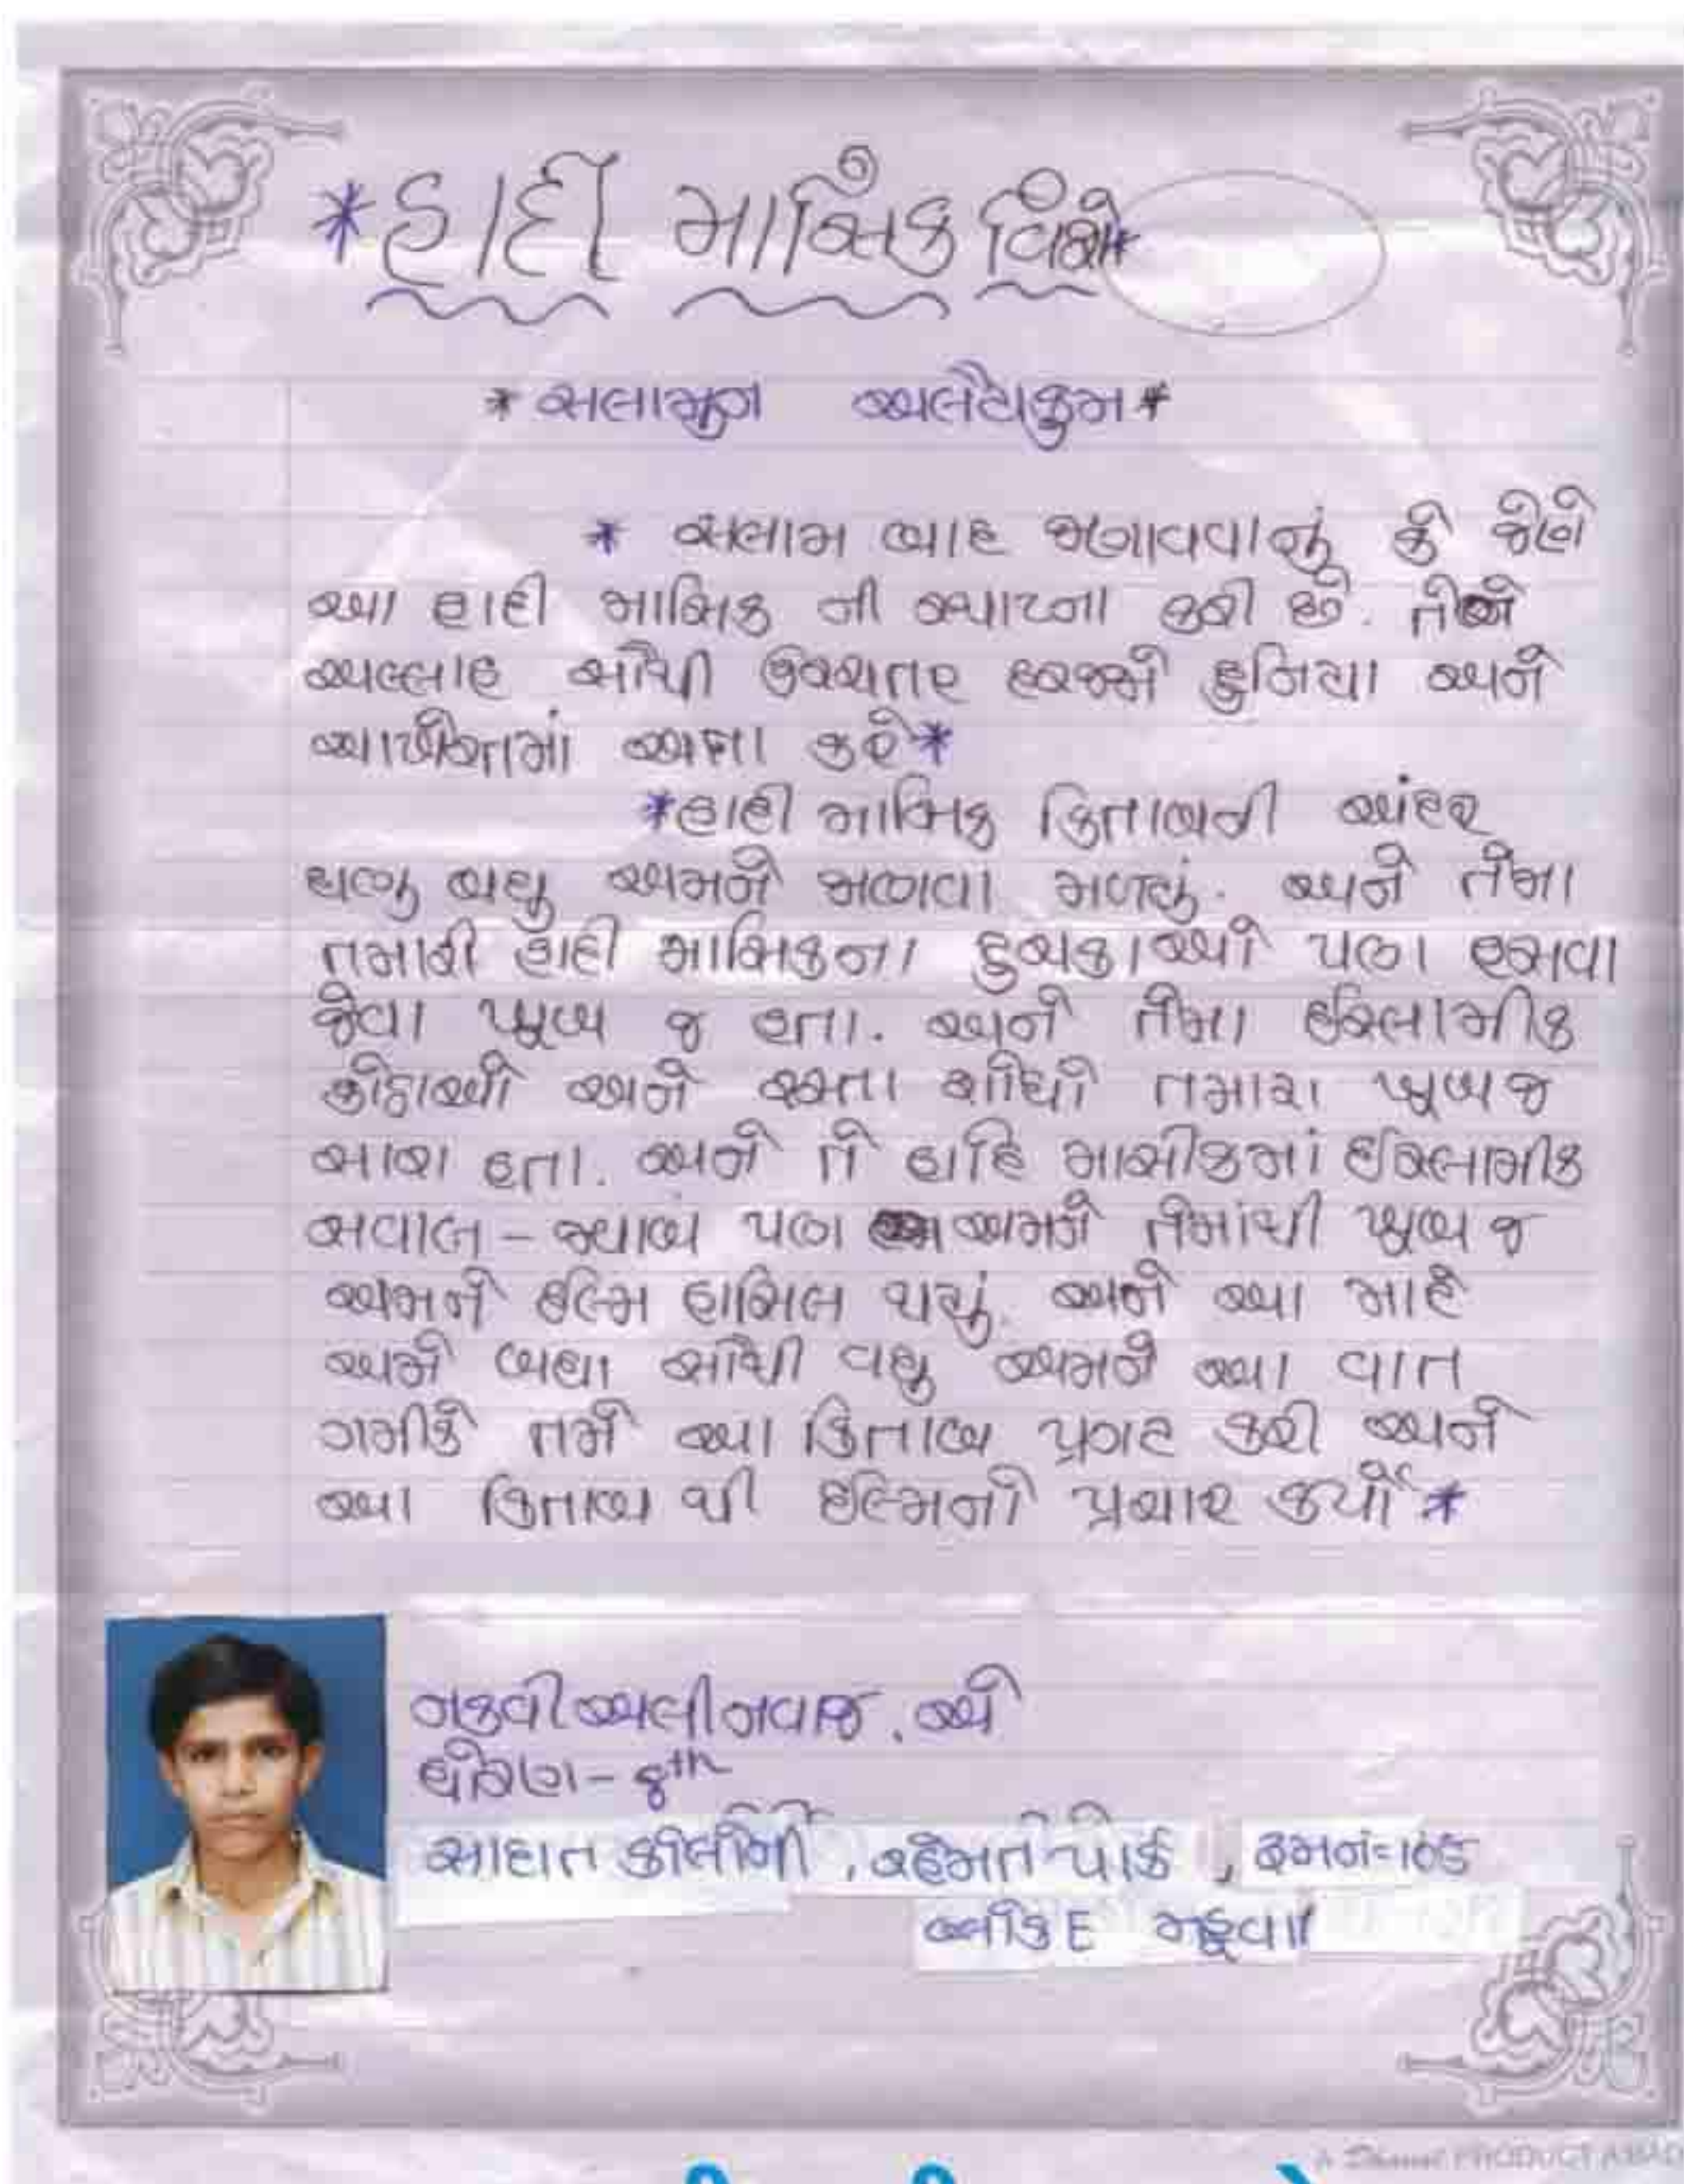 *હાદી માસિક વિશે*
*સલામુન અલૈયકુમ*
* સલામ બાદ જણાવવાનું કે જેણે
આ હાદી માસિક ની સ્થાપના કરી છે. તેઓને
અલ્લાહ સૌથી ઉચ્ચતર દરજ્જો દુનિયા અને
આખેરતમાં અતા કરે*
*હાદી માસિક કિતાબની અંદર
ઘણુ બધુ અમને જાણવા મળ્યું. અને તેમા
તમારી હાદી માસિકના ટુચકાઓ પણ હસવા
જેવા ખુબ જ હતા. અને તેમા ઈસ્લામીક
કોઠાઓ અને રસ્તા શોધો તમારા ખુબ જ
સારા હતા. અને તે હાદિ માસીકમાં ઈસ્લામીક
સવાલ - જવાબ પણ અમને તેમાંથી ખુબ જ
અમને ઈલ્મ હાસિલ થયું. અને આ માટે
અમે બધા સૌથી વધુ અમને આ વાત
ગમીકે તમે આ કિતાબ પ્રગટ કરી અને
આ કિતાબ થી ઈલ્મનો પ્રચાર કર્યો*
નકવી અલીનવાઝ. એ
ધોરણ - 8th
સાદાત કોલોની, રહેમતે પાર્ક, રૂમનં=103
બ્લોક E મહુવા
PRODUCT